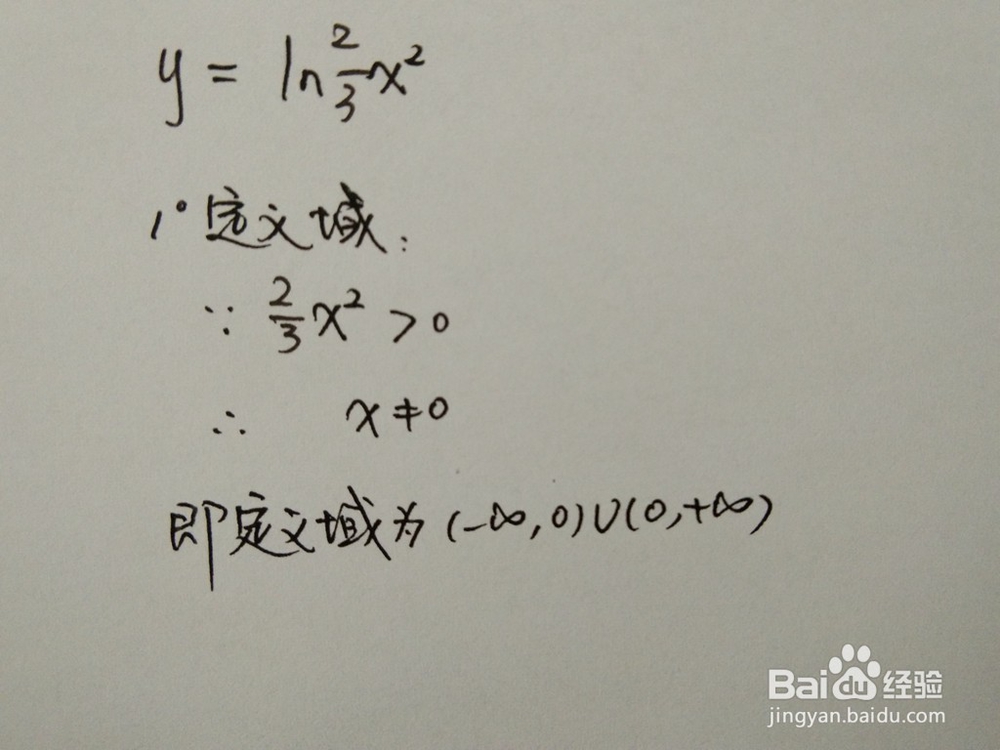 y = ln 2/3 x²
1° 定义域:
∵ 2/3 x² > 0
∴ x ≠ 0
即定义域为(-∞,0)∪(0,+∞)
Baidu 经验
jingyan.baidu.com